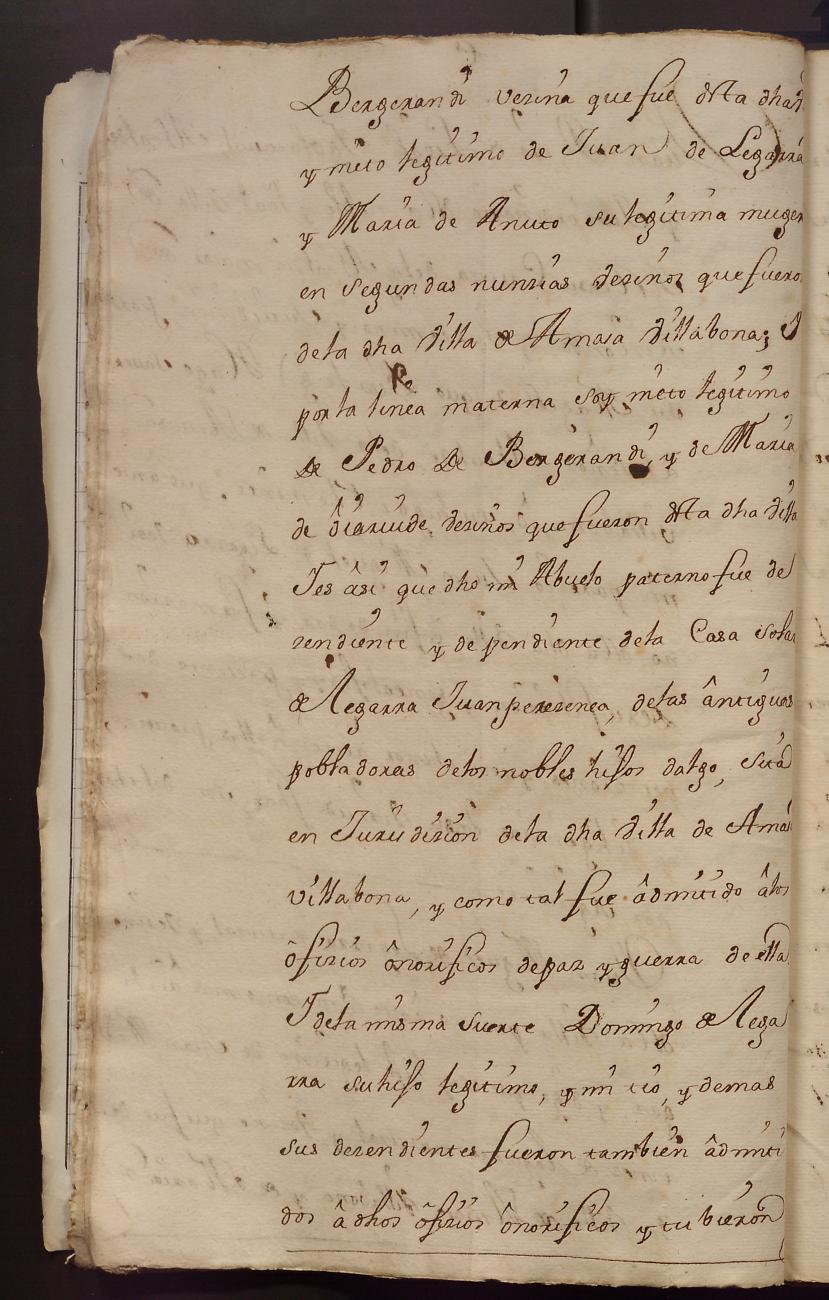 Bergerandi vezina que fue desta dha V
y nieto legitimo de Juan de Legarra
y Maria de Anuto su legitima muger
en segundas nunzias vezinos que fuero
de la dha Villa de Amasa Villabona; I
por la linea materna soy nieto legitimo
de Pedro de Bergerandi, y de Maria
de vezinos que fueron desta dha Villa
I es âsi que dho mi Abuelo paterno fue de
zendiente y dependiente de la Casa solar
de Legarra Juanperezenea, de las ântiguas
pobladoras de los nobles hisos dalgo, sita
en Jurisdizion de la dha Villa de Amasa
villabona, y como tal fue âdmitido â los
ôfizios ônorificos de paz y guerra de ella
I de la misma suerte Domingo de Lega
rra su hiso legitimo, y mi tio, y demas
sus dezendientes fueron tambien âdmiti
dos â dhos ôfizios ônorificos y tubieron